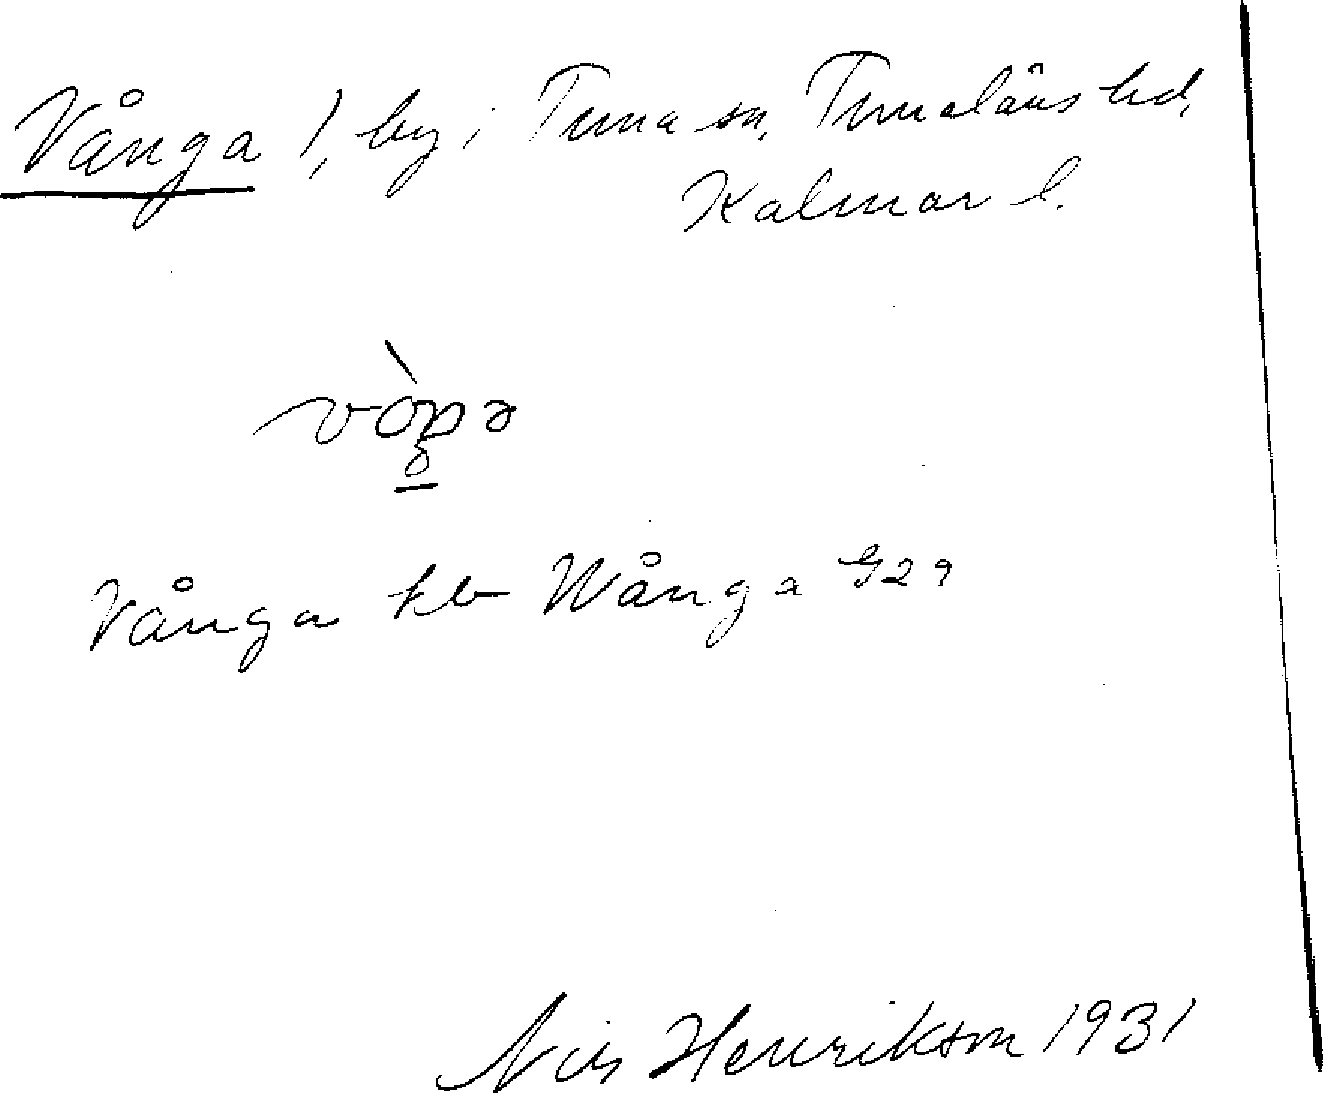 Vånga 1, by i Tuna sn, Tunaläns hd,
Kalmar l.
Vånga kb Wånga G29
Nils Henrikson 1931